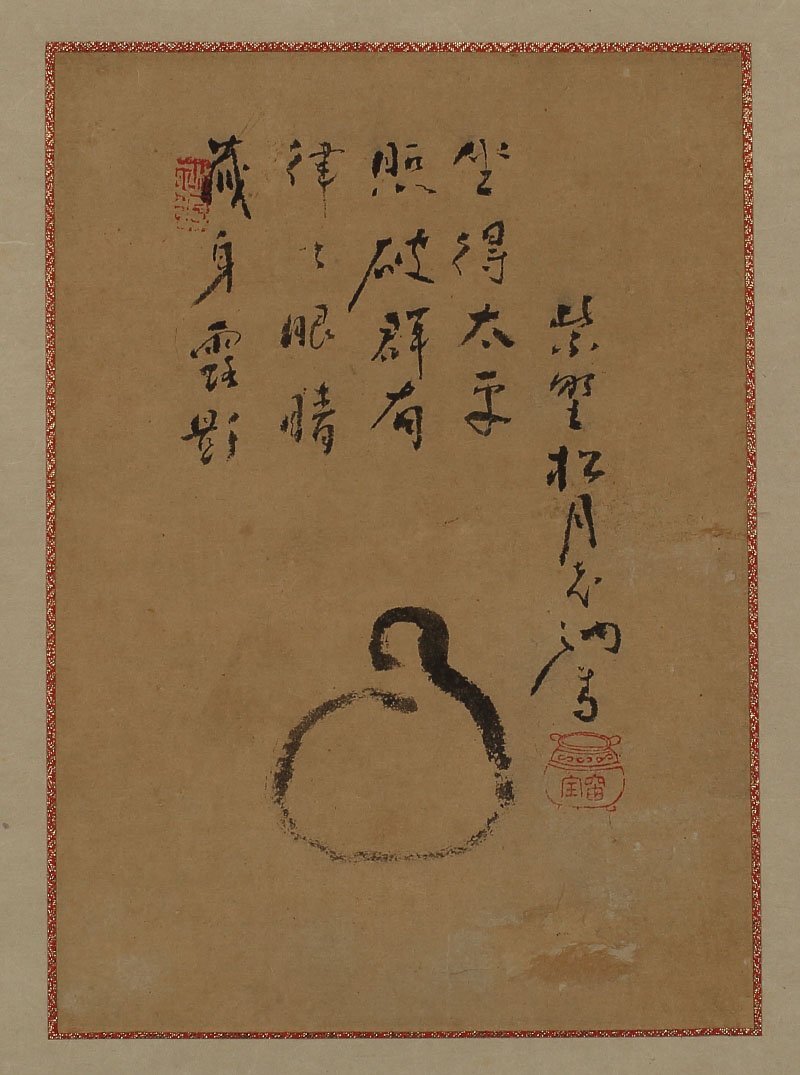 藏身露影
律々眼睛
照破群有
坐得太平
紫野松月老衲書
宙宝